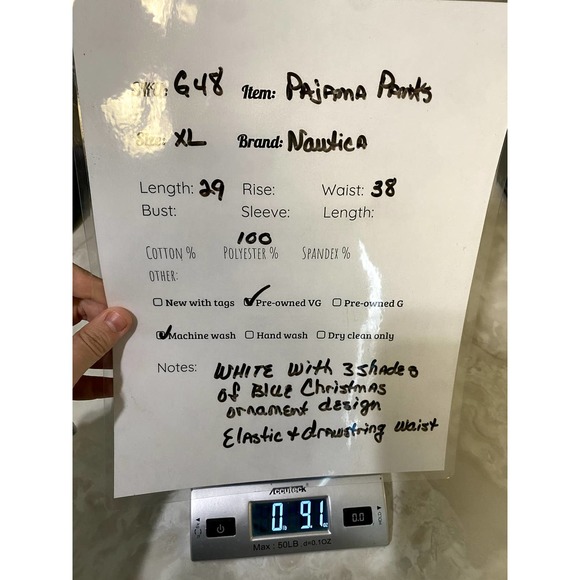 SKU: G48 Item: PAJAMA PANTS
Size: XL Brand: Nautica
Length: 29 Rise: Waist: 38
Bust: Sleeve: Length:
100
COTTON % POLYESTER % SPANDEX %
OTHER:
New with tags Pre-owned VG Pre-owned G
Machine wash Hand wash Dry clean only
Notes: WHITE with 3 shades
of Blue Christmas
ornament design
Elastic + drawstring waist
Accuteck
0 lb 9.1 oz
0.0
HOLD
Max : 50LB d=0.1OZ